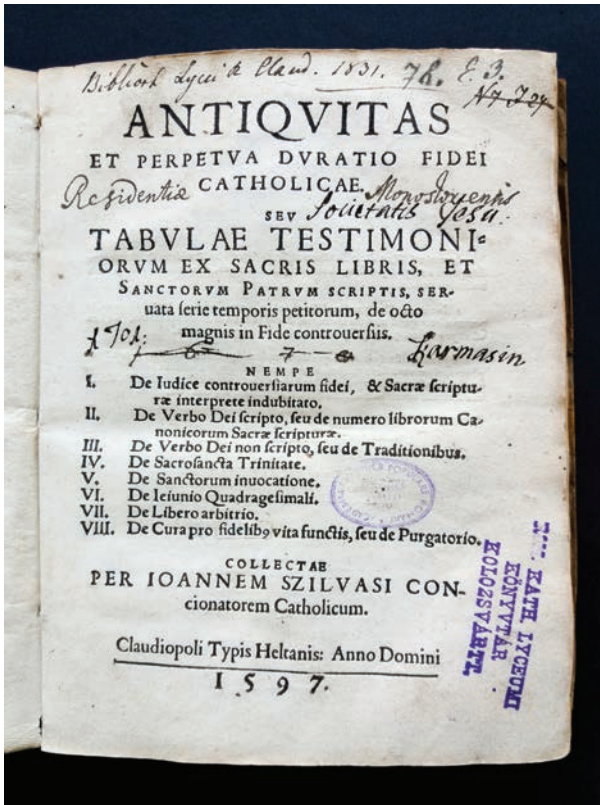 Bibliot. Lycei R. Claud. 1831. 7h. E. 3.
ANTIQVITAS
ET PERPETVA DVRATIO FIDEI
CATHOLICAE.
Residentiæ Monostoriensis
SEV Societatis Jesu.
TABVLAE TESTIMONI-
ORVM EX SACRIS LIBRIS, ET
SANCTORVM PATRVM SCRIPTIS, SER-
uata ſerie temporis petitorum, de octo
magnis in Fide controuerſiis.
Karmasin
NEMPE
I. De Iudice controuerſiarum fidei, & Sacræ ſcriptu-
ræ interprete indubitato.
II. De Verbo Dei ſcripto, ſeu de numero librorum Ca-
nonicorum Sacræ ſcripturæ.
III. De Verbo Dei non ſcripto, ſeu de Traditionibus.
IV. De Sacroſancta Trinitate.
V. De Sanctorum inuocatione.
VI. De Ieiunio Quadrageſimali.
VII. De Libero arbitrio.
VIII. De Cura pro fidelib9 vita functis, ſeu de Purgatorio.
COLLECTAE
PER IOANNEM SZILVASI CON-
cionatorem Catholicum.
Claudiopoli Typis Heltanis: Anno Domini
1597.
KATH. LYCEUMI
KÖNYVTÁR
KOLOZSVÁRTT.